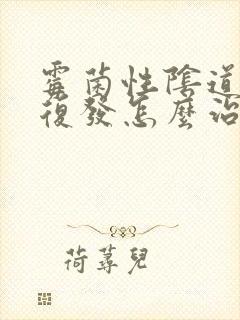 霉菌性陰道
復發怎麼治
荷蕁兒